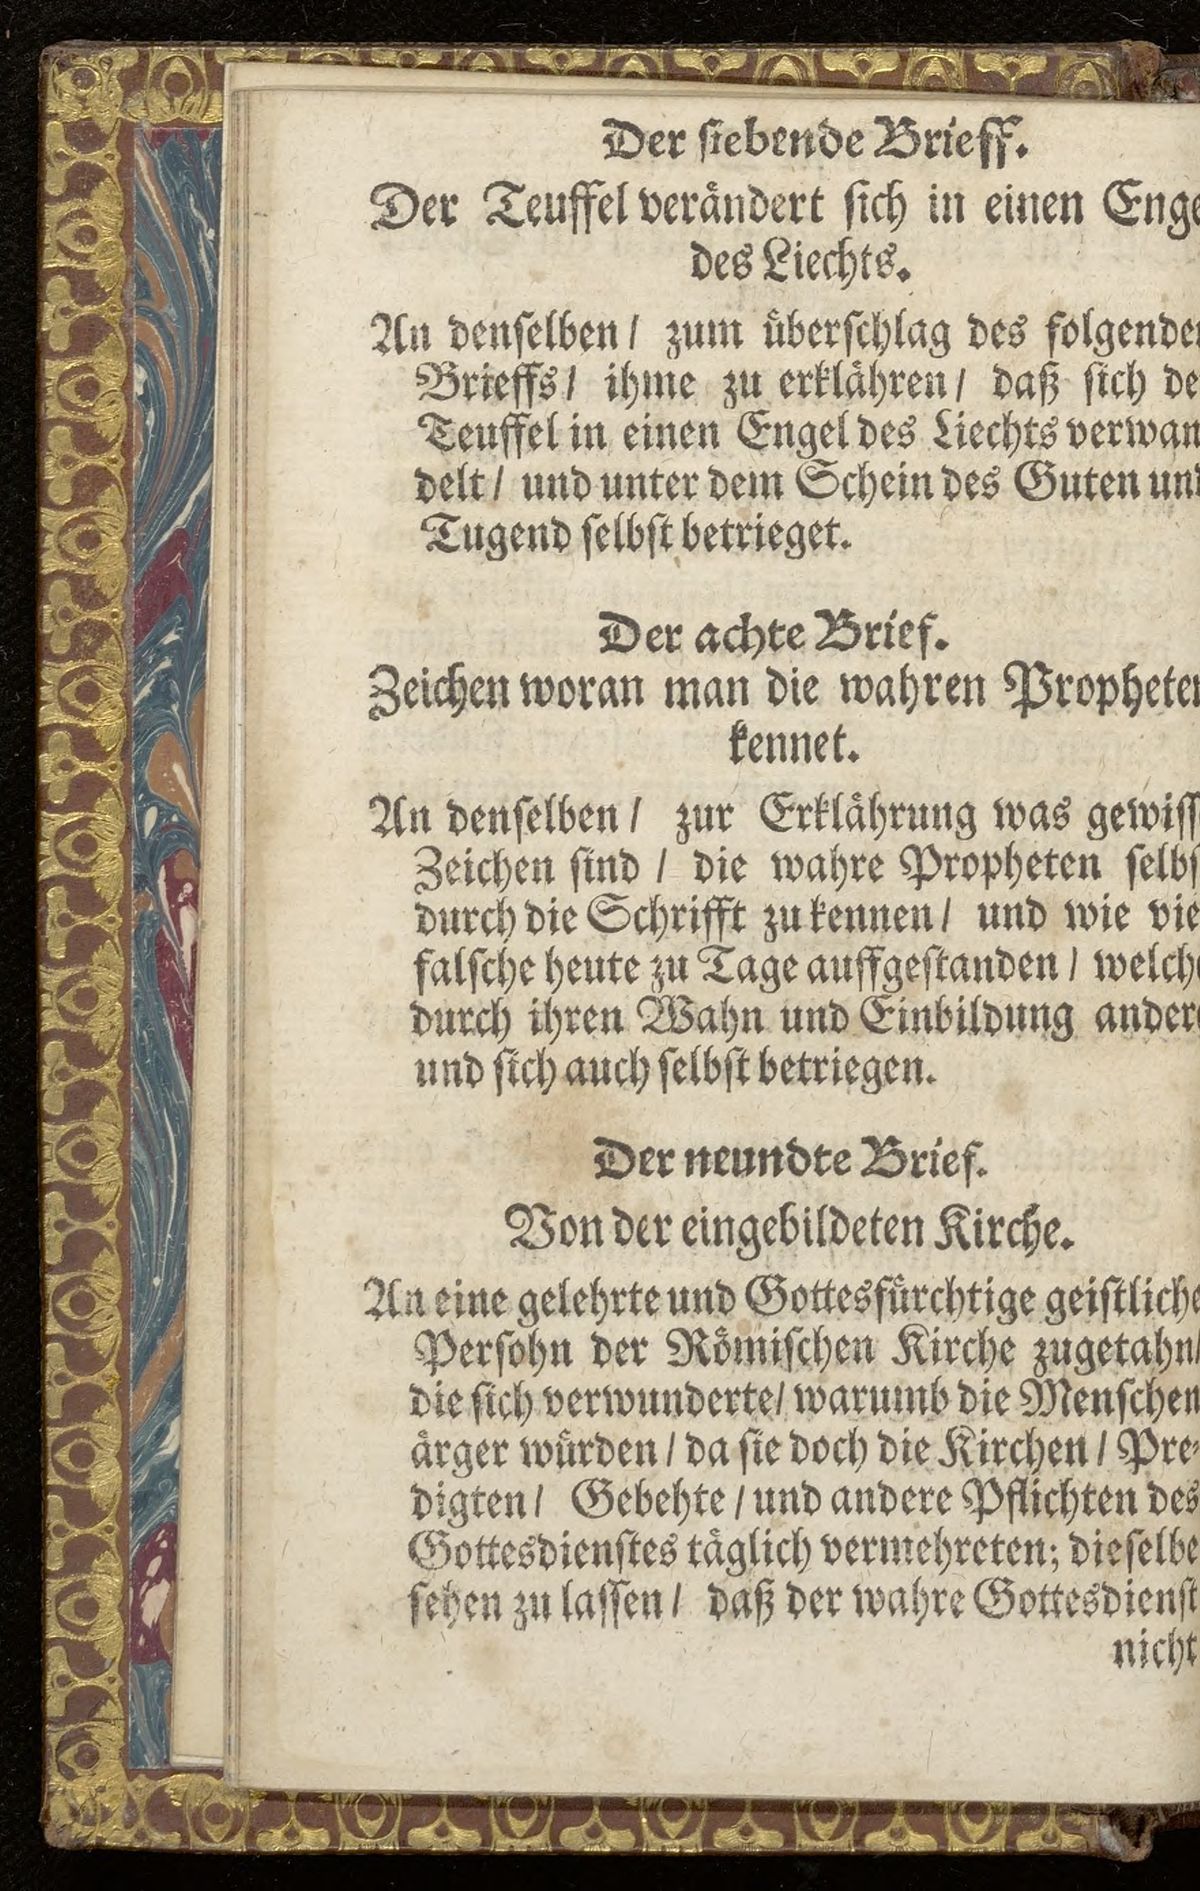 Der siebende Brieff.
Der Teuffel verändert sich in einen Enge
des Liechts.
An denselben / zum überschlag des folgenden
Brieffs / ihme zu erklähren / daß sich de
Teuffel in einen Engel des Liechts verwan
delt / und unter dem Schein des Guten und
Tugend selbst betrieget.
Der achte Brief.
Zeichen woran man die wahren Propheten
kennet.
An denselben / zur Erklährung was gewisse
Zeichen sind / die wahre Propheten selbs
durch die Schrifft zu kennen / und wie vie
falsche heute zu Tage auffgestanden / welche
durch ihren Wahn und Einbildung andere
und sich auch selbst betriegen.
Der neundte Brief.
Von der eingebildeten Kirche.
An eine gelehrte und Gottesfürchtige geistliche
Persohn der Römischen Kirche zugetahn /
die sich verwunderte / warumb die Menschen
ärger würden / da sie doch die Kirchen / Pre-
digten / Gebehte / und andere Pflichten des
Gottesdienstes täglich vermehreten; dieselbe
sehen zu lassen / daß der wahre Gottesdienst
nicht